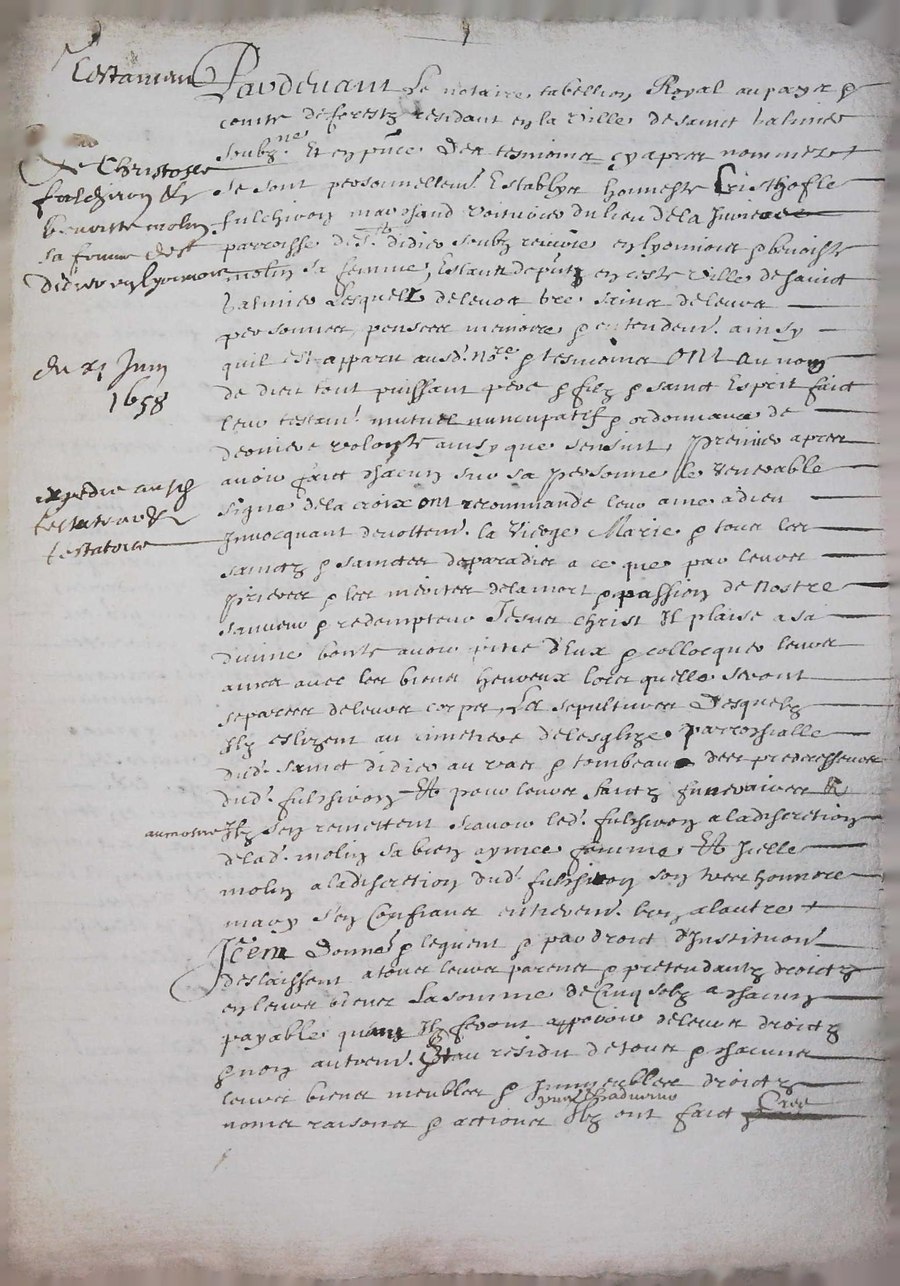 Testament
De Christofle
fulchiron &
benoiste molin
sa femme de St
didier en lyonnois
du 21 Juin
1658
expedié ausd
testateur &
testatrice
Pardevant Le notaire tabellion Royal au pays &
comté de forestz residant en la Ville de sainct Galmier
soubzné Et en pnce Des tesmoins cy apres nommez
se sont personnellemt Establys honneste Cristhofle
fulchiron marchand voiturier du lieu de la
parroisse de St didier soubz reiviere en lyonnois & benoiste
molin sa femme, Estants de putz en ceste Ville de sainct
Galmier Lesquelz de leurs bre sains de leurs
personnes, pensees memoire & entendemt ainsy
quil est apparu ausd. Nore & tesmoins ONt au nom
de dieu tout puissant pere & filz & sainct Esprit faict
leur testamt mutuel nuncupatif & ordonnance de
derniere volonte ainsy que sensuit, Premier apres
avoir faict chacun sur sa personne le venerable
signe de la croix ont recommande leur ame a dieu
Invocquant devottemt la Vierge Marie & tous les
sainctz & sainctes de paradis a ce que par leurs
prieres & les merites de la mort & passion de Nostre
sauveur & redempteur Jesus christ Il plaise a sa
divine bonte avoir pitie d'Eux & collocquer leurs
ames avec les biens heureux lors quelles seront
separees de leurs corps, La sepultures Desquelz
Ilz eslizent au cimetiere de lesglize parrochialle
dud. sainct didier au vas & tombeau des predecesseurs
dud. fulchiron Et pour leurs faictz funeraires &
aumosne Ilz sen remettent scavoir led. fulchiron a la discretion
de lad. molin sa bien aymee femme Et Icelle
molin a la discretion dud. fulchiron son tres honnore
mary s'en Confiants entieremt lun a lautre
Item Donnet & leguent & par droit d'Institution
deslaissent a tous leurs parens & pretendantz droictz
en leurs biens La somme de Cinq solz a chacun
payable quand Ilz feront apparoir de leurs droictz
& non autremt. Et au residu de tous & chacuns
leurs biens meubles & Immeubles droictz
noms raisons & actions Ilz ont faict